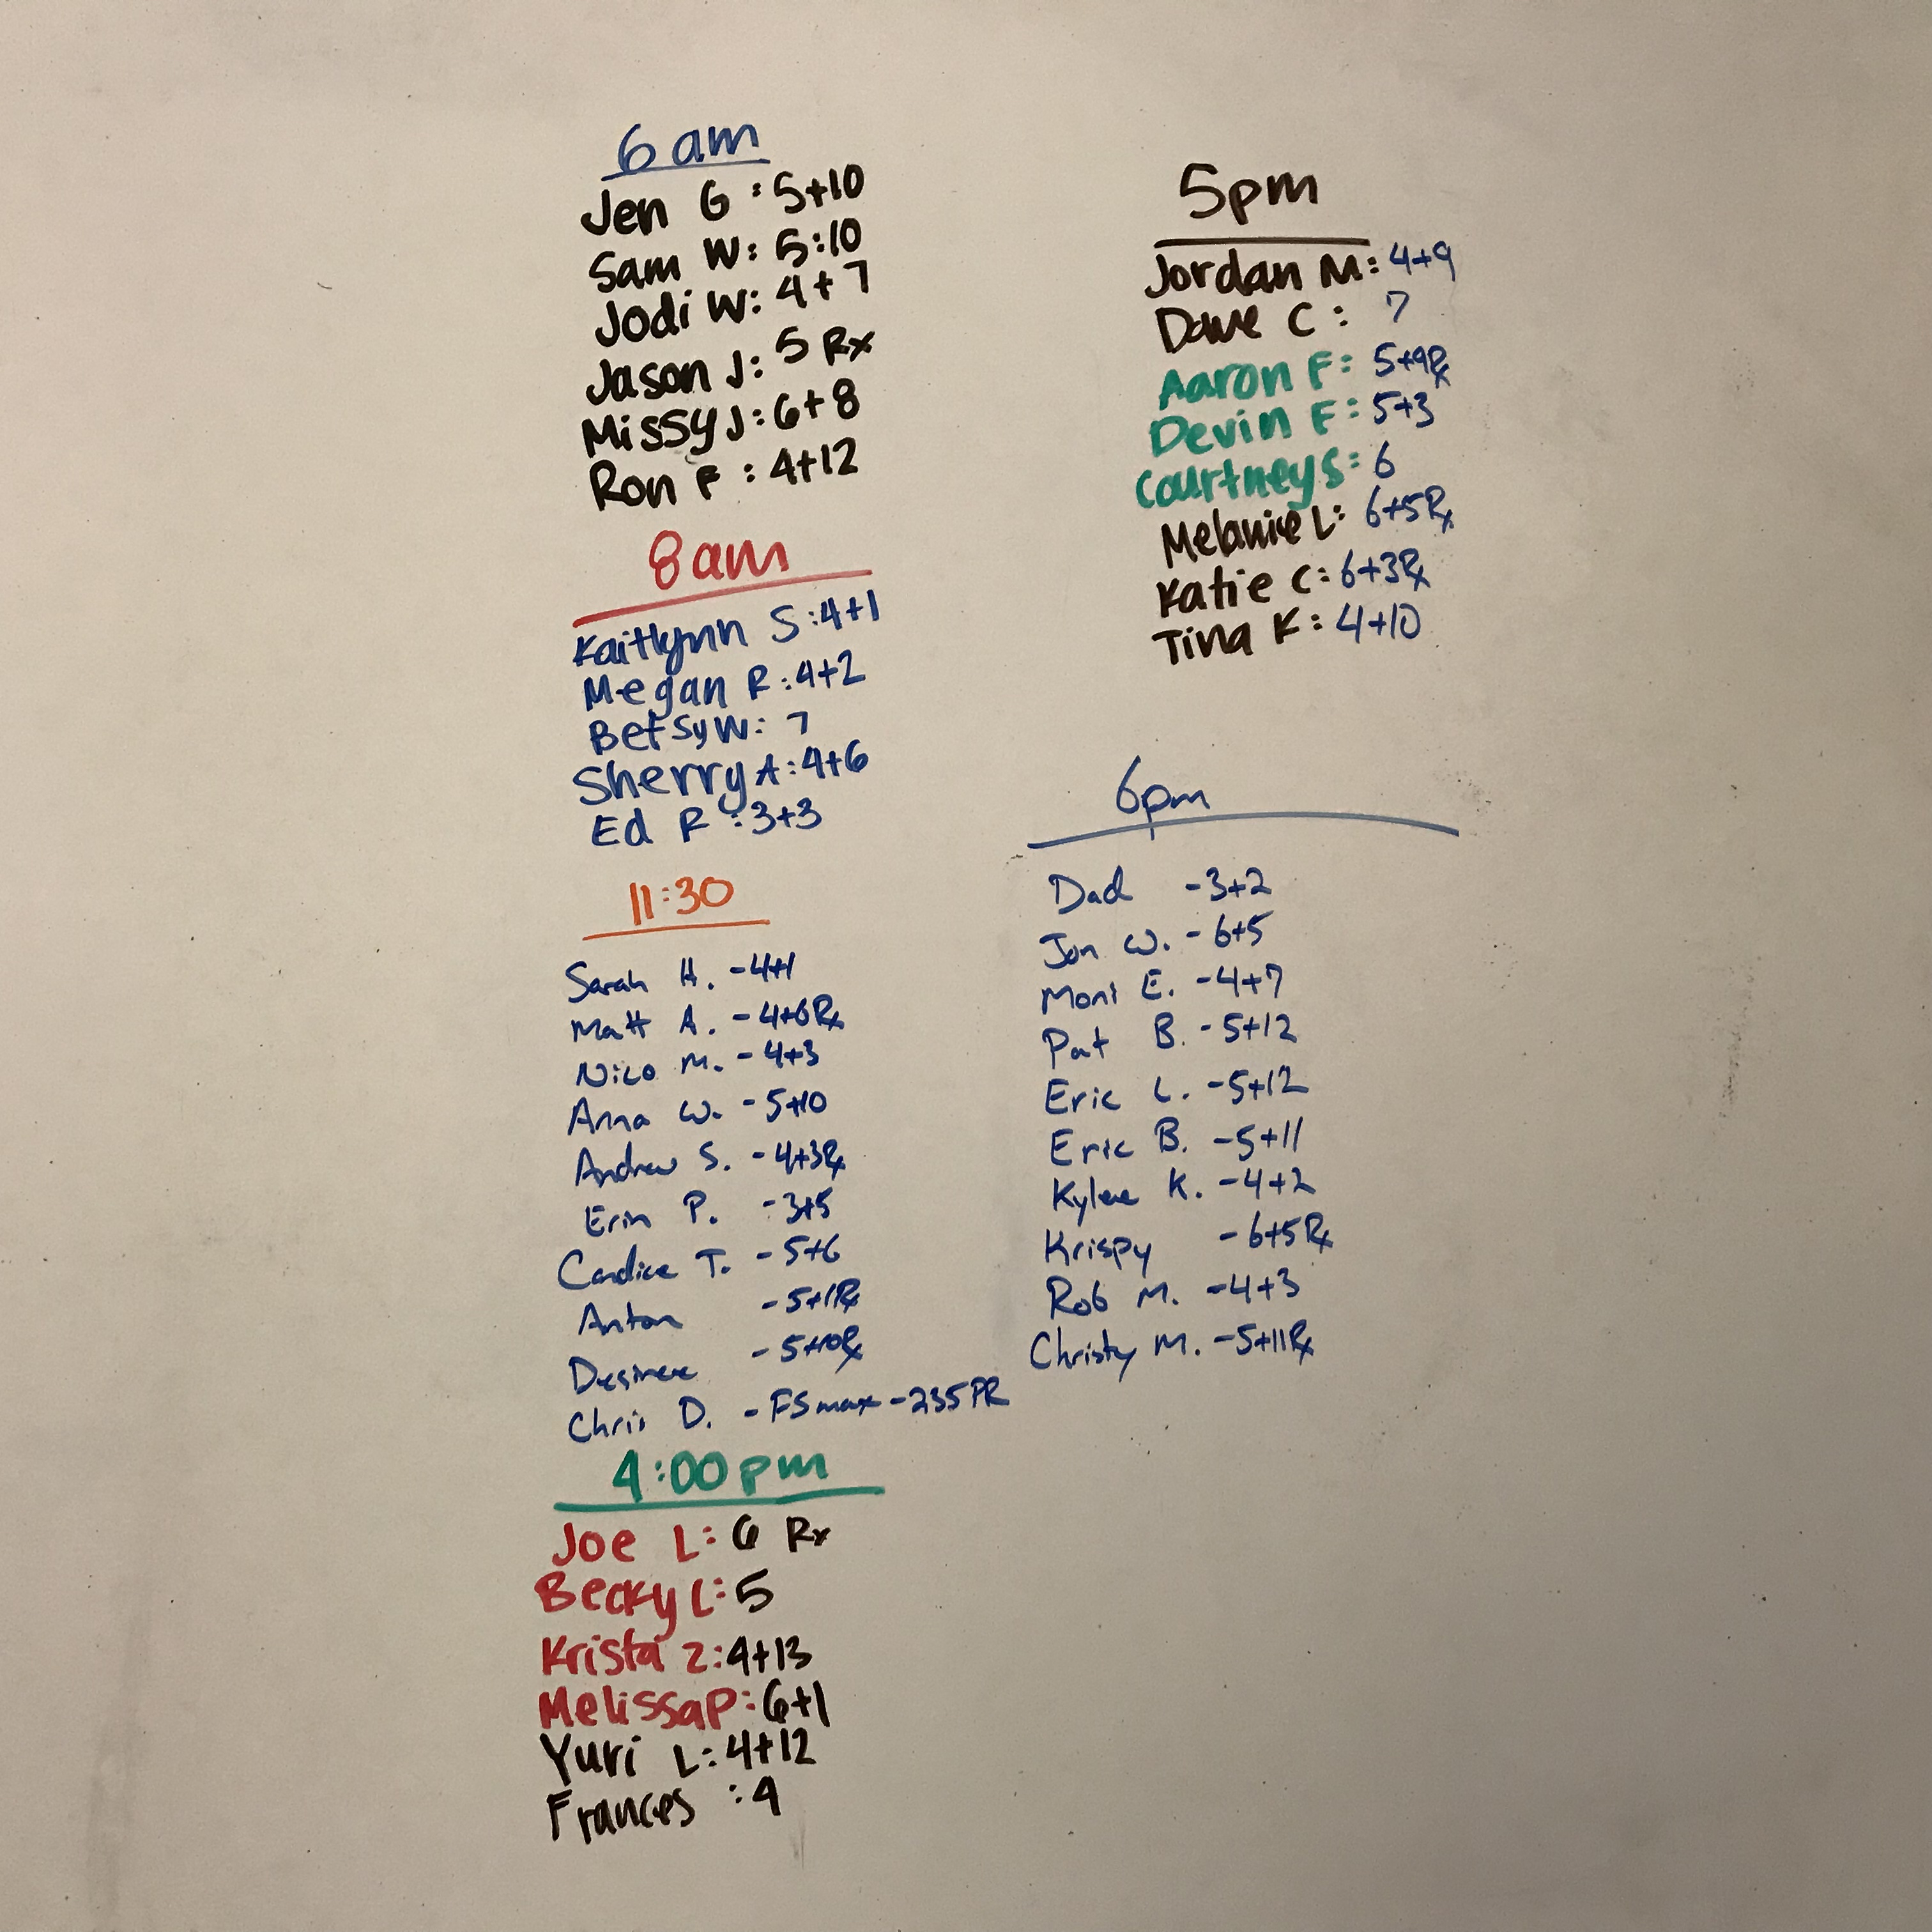 6am
Jen G : 5+10
Sam W: 5:10
Jodi W: 4+7
Jason J: 5 Rx
Missy J: 6+8
Ron F : 4+12
8am
Kaitlynn S: 4+1
Megan R: 4+2
Betsy W: 7
Sherry A: 4+6
Ed R : 3+3
11:30
Sarah H. - 4+1
Matt A. - 4+6Rx
Nico M. - 4+3
Anna W. - 5+10
Andrew S. - 4+3Rx
Erin P. - 3+5
Candice T. - 5+6
Anton - 5+1Rx
Desiree - 5+10Rx
Chris D. - FS max - 235 PR
4:00pm
Joe L: 6 Rx
Becky L: 5
Krista Z: 4+13
Melissa P: 6+1
Yuri L: 4+12
Frances : 4
5pm
Jordan M: 4+9
Dave C : 7
Aaron F: 5+9Rx
Devin F: 5+3
Courtney S: 6
Melanie L: 6+5Rx
Katie C: 6+3Rx
Tina K: 4+10
6pm
Dad - 3+2
Jon W. - 6+5
Moni E. - 4+7
Pat B. - 5+12
Eric L. - 5+12
Eric B. - 5+11
Kylee K. - 4+2
Krispy - 6+5Rx
Rob M. - 4+3
Christy M. - 5+11Rx